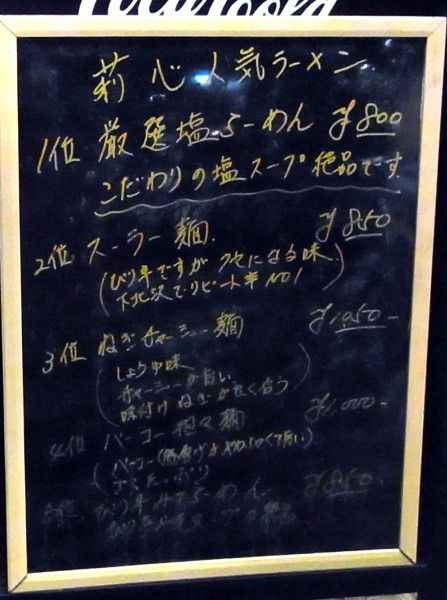 莉心人気ラーメン
1位 厳選塩らーめん ¥800
こだわりの塩スープ絶品です
2位 スーラー麺 ¥850
(ぴり辛ですがクセになる味
下北沢でリピート率NO1)
3位 ねぎチャーシュー麺 ¥1,050-
(しょうゆ味
チャーシューが旨い
味付けねぎがよく合う)
4位 パーコー担々麺 ¥1,000-
(パーコー
5位 ぴり辛みそらーめん ¥850